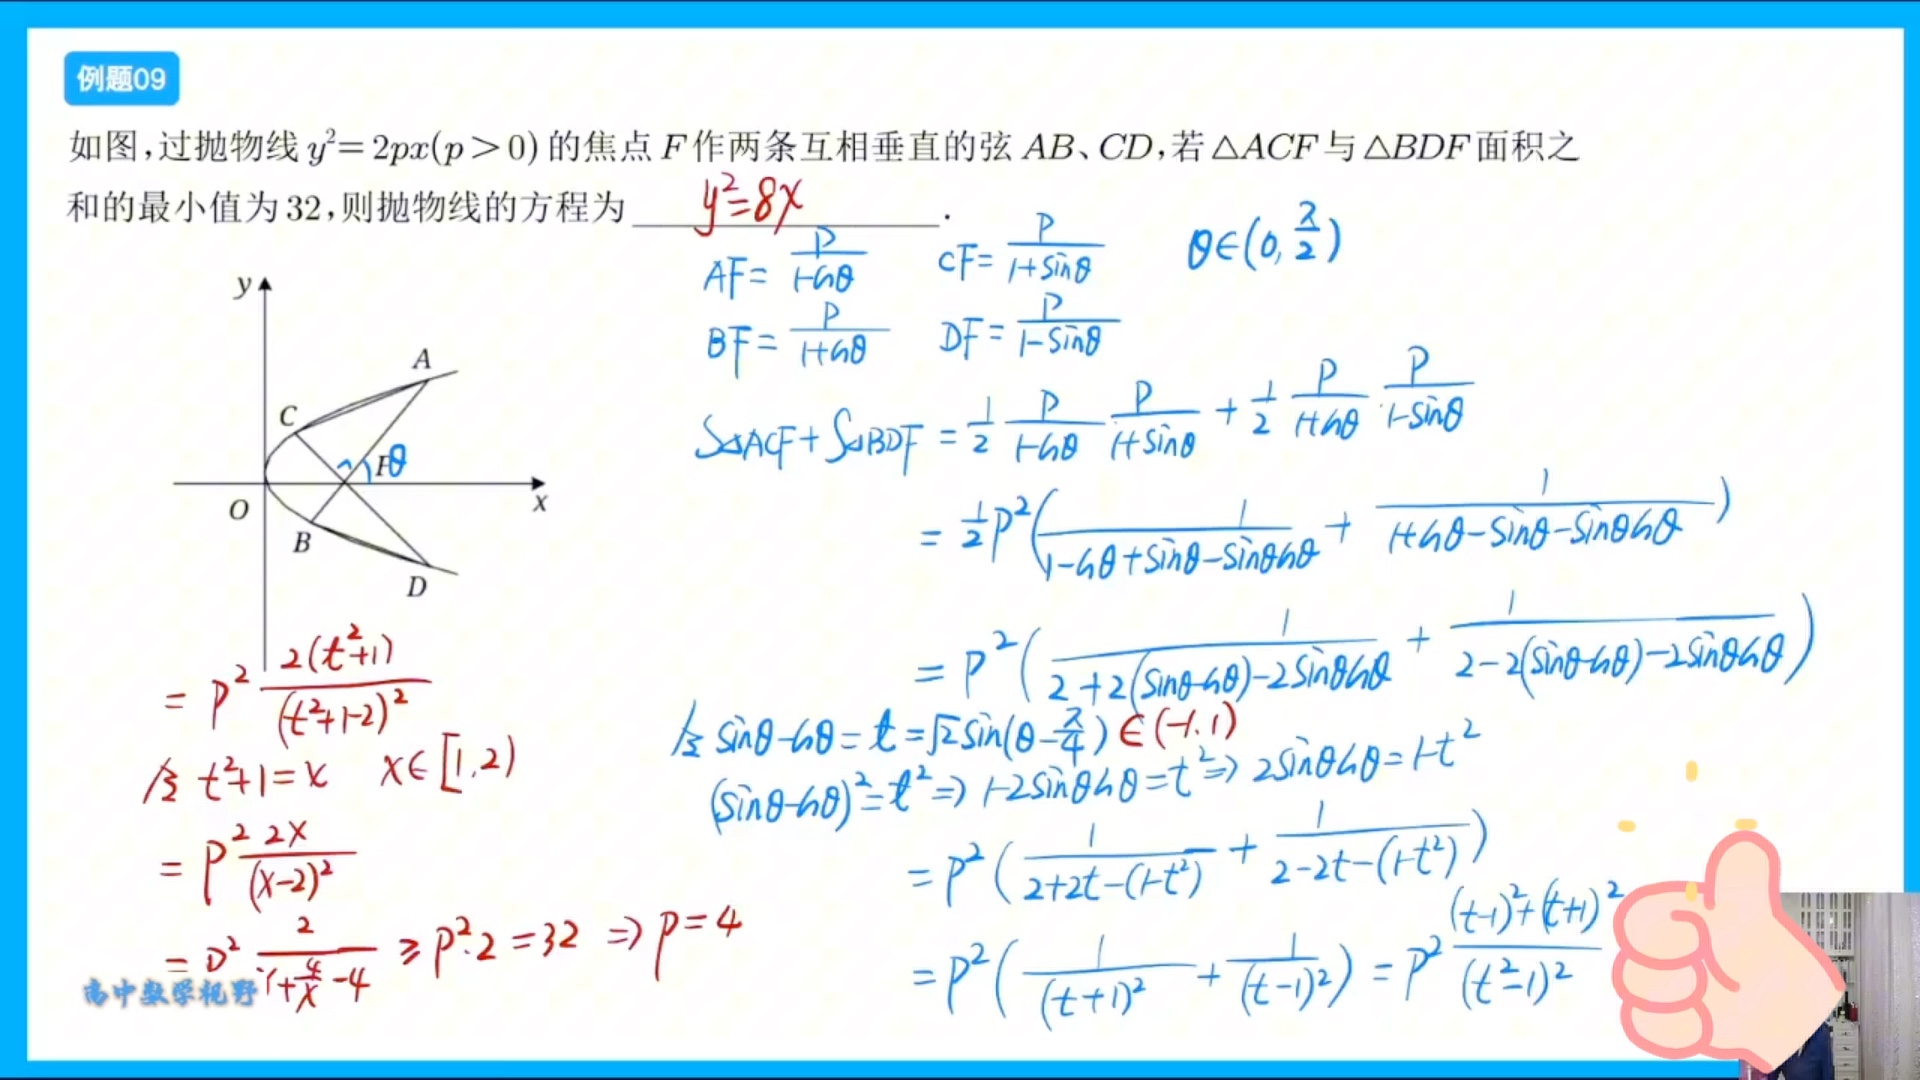 例题09
如图,过抛物线 y²=2px(p>0) 的焦点 F 作两条互相垂直的弦 AB、CD,若 △ACF 与 △BDF 面积之
和的最小值为 32,则抛物线的方程为 y²=8x .
AF= p/(1-cosθ) CF= p/(1+sinθ) θ∈(0, π/2)
BF= p/(1+cosθ) DF= p/(1-sinθ)
S△ACF+S△BDF = 1/2 p/(1-cosθ) p/(1+sinθ) + 1/2 p/(1+cosθ) p/(1-sinθ)
= 1/2 p²( 1/(1-cosθ+sinθ-sinθcosθ) + 1/(1+cosθ-sinθ-sinθcosθ) )
= p²( 1/(2+2(sinθ-cosθ)-2sinθcosθ) + 1/(2-2(sinθ-cosθ)-2sinθcosθ) )
令 sinθ-cosθ= t =√2sin(θ-π/4) ∈(-1,1)
(sinθ-cosθ)²=t² ⇒ 1-2sinθcosθ=t² ⇒ 2sinθcosθ=1-t²
= p²( 1/(2+2t-(1-t²)) + 1/(2-2t-(1-t²)) )
= p²( 1/(t+1)² + 1/(t-1)² ) = p² ((t-1)²+(t+1)²)/(t²-1)²
y
A
C
F θ
O
x
B
D
= p² 2(t²+1)/(t²+1-2)²
令 t²+1=x x∈[1,2)
= p² 2x/(x-2)²
= p² 2/(x+4/x-4) ≥ p²·2 =32 ⇒ p=4
高中数学视野